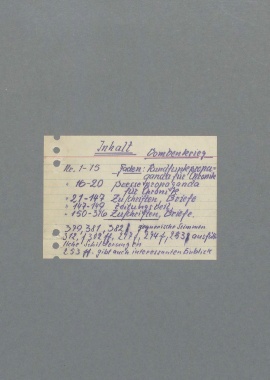 Inhalt Bombenkrieg
Nr. 1-15 Reden: Rundfunkpropa-
ganda für Chronik
" 16-20 Pressepropaganda
für Chronik
" 21-147 Zuschriften, Briefe
" 147-149 Zeitungsteil
" 150-310 Zuschriften, Briefe.
379, 381, 382 ff Stimmen
312, 382 ff, 253 ff ausführ
liche Schilderungen
253 ff. gibt auch interessanten Einblick